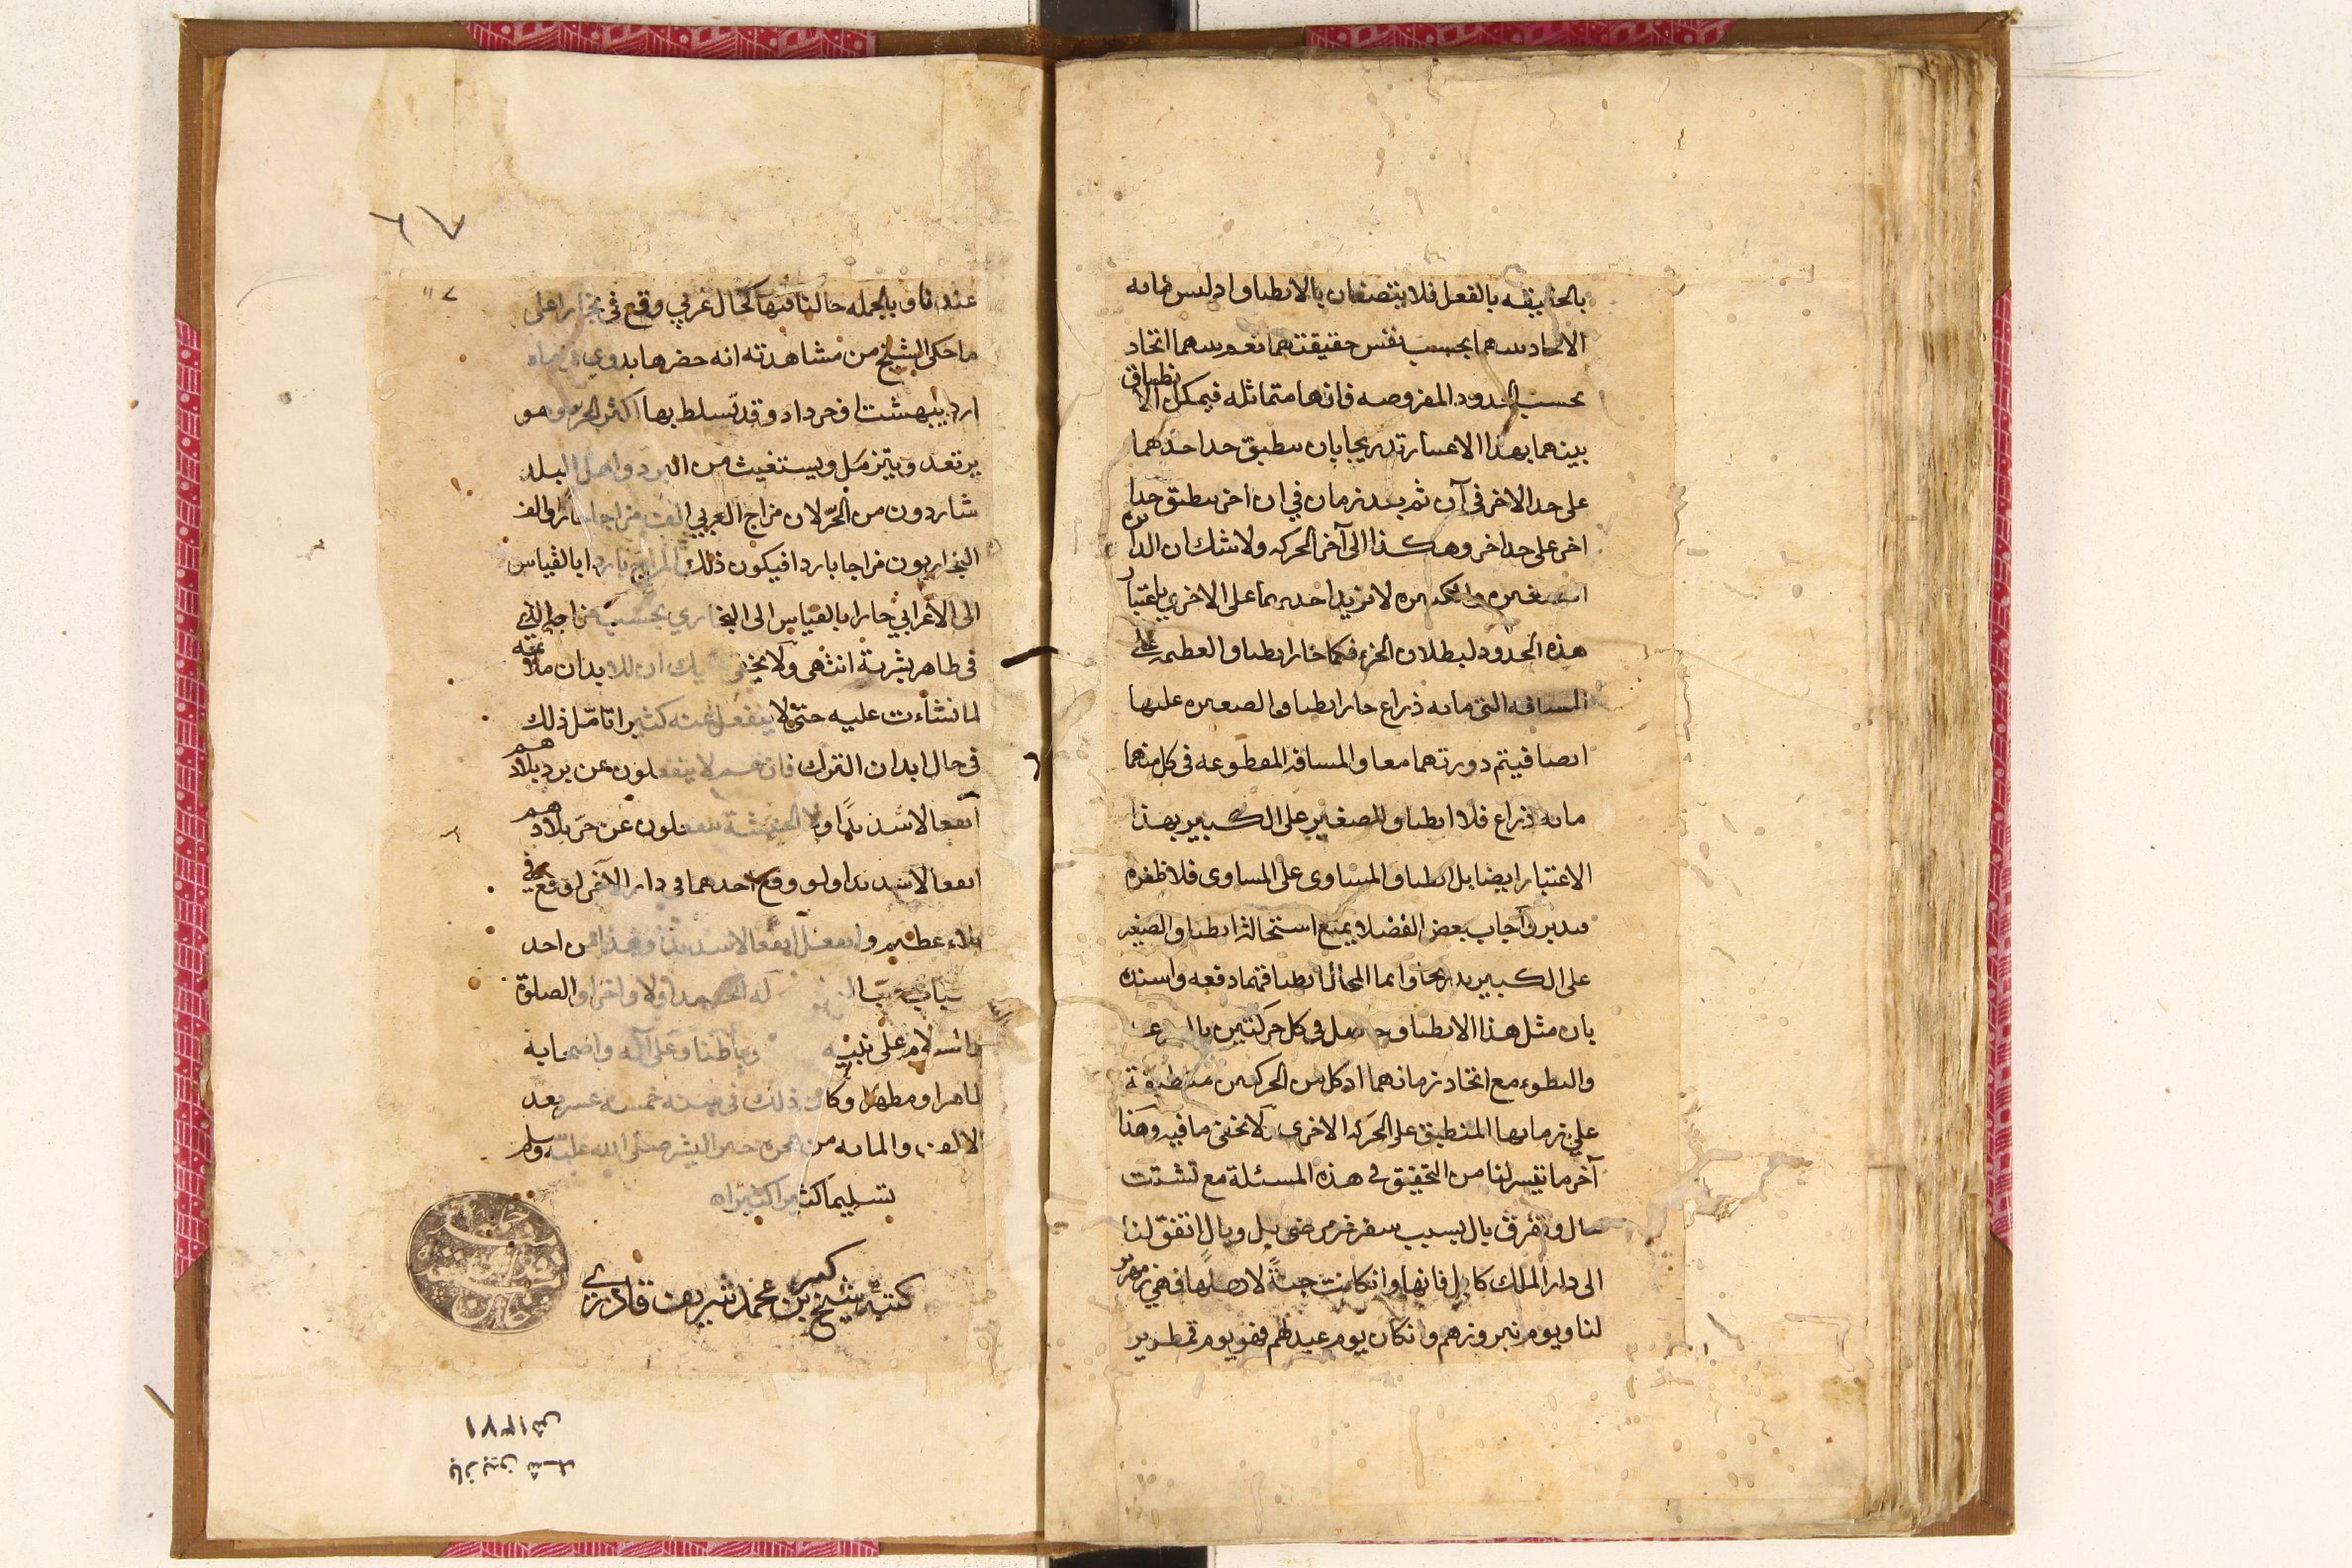 بالحقيقه بالفعل فلا يتصفان بالانطباق اد ليس مابه
الاتحاد بينهما بحسب نفس حقيقتهما نعم بينهما اتحاد
بحسب الحدود المفروصه فانها متماثله فيمكن الانطباق
بينهما بهذا الاعتبار تدريجا بان ينطبق حد احدهما
على حد الاخر فى آن ثم بعد زمان في ان اخر ينطبق حدا
اخر على حد اخر وهكذا الى آخر الحركه ولا شك ان الدائره
الصغيره والكبيره لا تزيد احديهما على الاخرى باعتبار
هذه الحدود لبطلان الجزء فكما جاز انطباق العظيمه على
المسافه التى مايه ذراع جاز انطباق الصغيره عليها
ايضا فيتم دورتهما معا والمسافه المقطوعه فى كل منهما
مايه ذراع فلا انطباق الصغير على الكبير بهذا
الاعتبار ايضا بل انطباق المساوى على المساوى فلا طفره
فتدبر واجاب بعض الفضلا بمنع استحالة انطباق الصغير
على الكبير تدريجا وانما المحال انطباقهما دفعه واسنده
بان مثل هذا الانطباق حاصل فى كل حركتين
والبطوء مع اتحاد زمانهما اذ كل من الحركتين منطبقة
على زمانها المنطبق على الحركه الاخرى ولا يخفى ما فيه وهذا
آخر ما تيسر لنا من التحقيق فى هذه المسئلة مع تشتت
حال وتفرق بال بسبب سفر غير مرضى بل وبال اتفق لنا
الى دار الملك كابل فانها وانكانت جنةً لاهلها فهى زمهرير
لنا ويوم نيروزهم وانكان يوم عيد لهم فهو يوم قمطرير
عندنا وبالجمله حالنا فيها كحال عربي وقع فى بخارا على
ما حكى الشيخ من مشاهدته انه حضرها بدوي في ماه
ارديبهشت او خرداد وقد تسلط بها اكثر الحر وهو
يرتعد ويتزمل ويستغيث من البرد واهل البلد
شاردون من الحرّ لان مزاج العربي الف مزاجا حارا والف
البخاريون مزاجا باردا فيكون ذلك المزاج باردا بالقياس
الى الاعرابي حارا بالقياس الى البخاري بحسب مزاجه الذي
فى ظاهر بشرية انتهى ولا يخفى عليك ان للابدان ملائمة
لما نشاءت عليه حتى لا ينفعل عنه كثيرا تامّل ذلك
فى حال ابدان الترك فانهم لا ينفعلون عن برد بلادهم
انفعالا شديدًا ولا الحبشة ينفعلون عن حرّ بلادهم
انفعالا شديدا ولو وقع احدهما فى دار الآخر لوقع فى
بلاء عظيم وانفعل انفعالا شديدا وهذا من احد
له الحمد اولا واخرا والصلوة
والسلام على نبيه وباطنا وعلى آله واصحابه
طاهرا ومطهرا وكان ذلك فى سنه خمسه عشر بعد
الالف والمايه من هجره خير البشر صلى الله عليه وسلم
تسليما كثيرا كثيراه
كتبه شيخ كبير بن محمد شريف قادرى
باز بين شد
١٣٧١ش